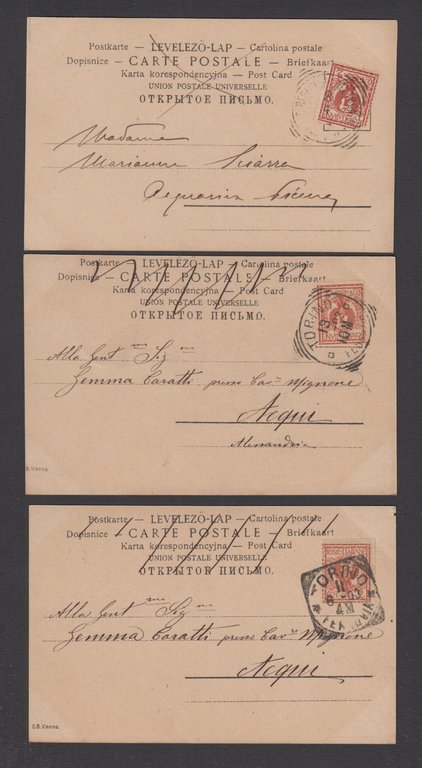 Postkarte – LEVELEZŐ-LAP – Cartolina postale
Dopisnice – CARTE POSTALE – Briefkaart
Karta korespondencyjna – Post Card
UNION POSTALE UNIVERSELLE
ОТКРЫТОЕ ПИСЬМО.
Madame
Marianne Sciarra
Postkarte – LEVELEZŐ-LAP – Cartolina postale
Dopisnice – CARTE POSTALE – Briefkaart
Karta korespondencyjna – Post Card
UNION POSTALE UNIVERSELLE
ОТКРЫТОЕ ПИСЬМО.
TORINO
Alla Gent Sig
Gemma Caratti presso Cav. Mignone
Acqui
Alessandria
S.B. Vienna.
Postkarte – LEVELEZŐ-LAP – Cartolina postale
Dopisnice – CARTE POSTALE – Briefkaart
Karta korespondencyjna – Post Card
UNION POSTALE UNIVERSELLE
ОТКРЫТОЕ ПИСЬМО.
TORINO
FERROVIA
Alla Gent Sig
Gemma Caratti presso Cav. Mignone
Acqui
S.B. Vienna.